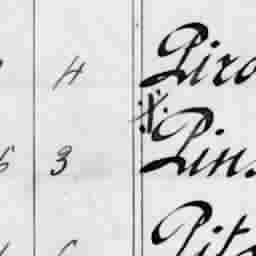 4 Piro
6 3 Pin.
Pit